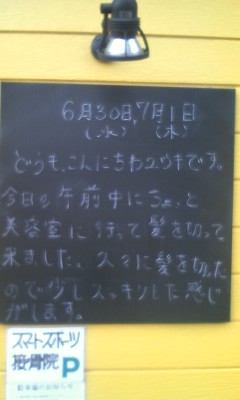 6月30日,7月1日
(水) (木)
どうも、こんにちわユウキです。
今日の午前中にちょっと
美容室に行って髪を切って
来ました。久々に髪を切った
ので少しスッキリした感じ
がします。
スマートスポーツ
接骨院 P
駐車場のお知らせ